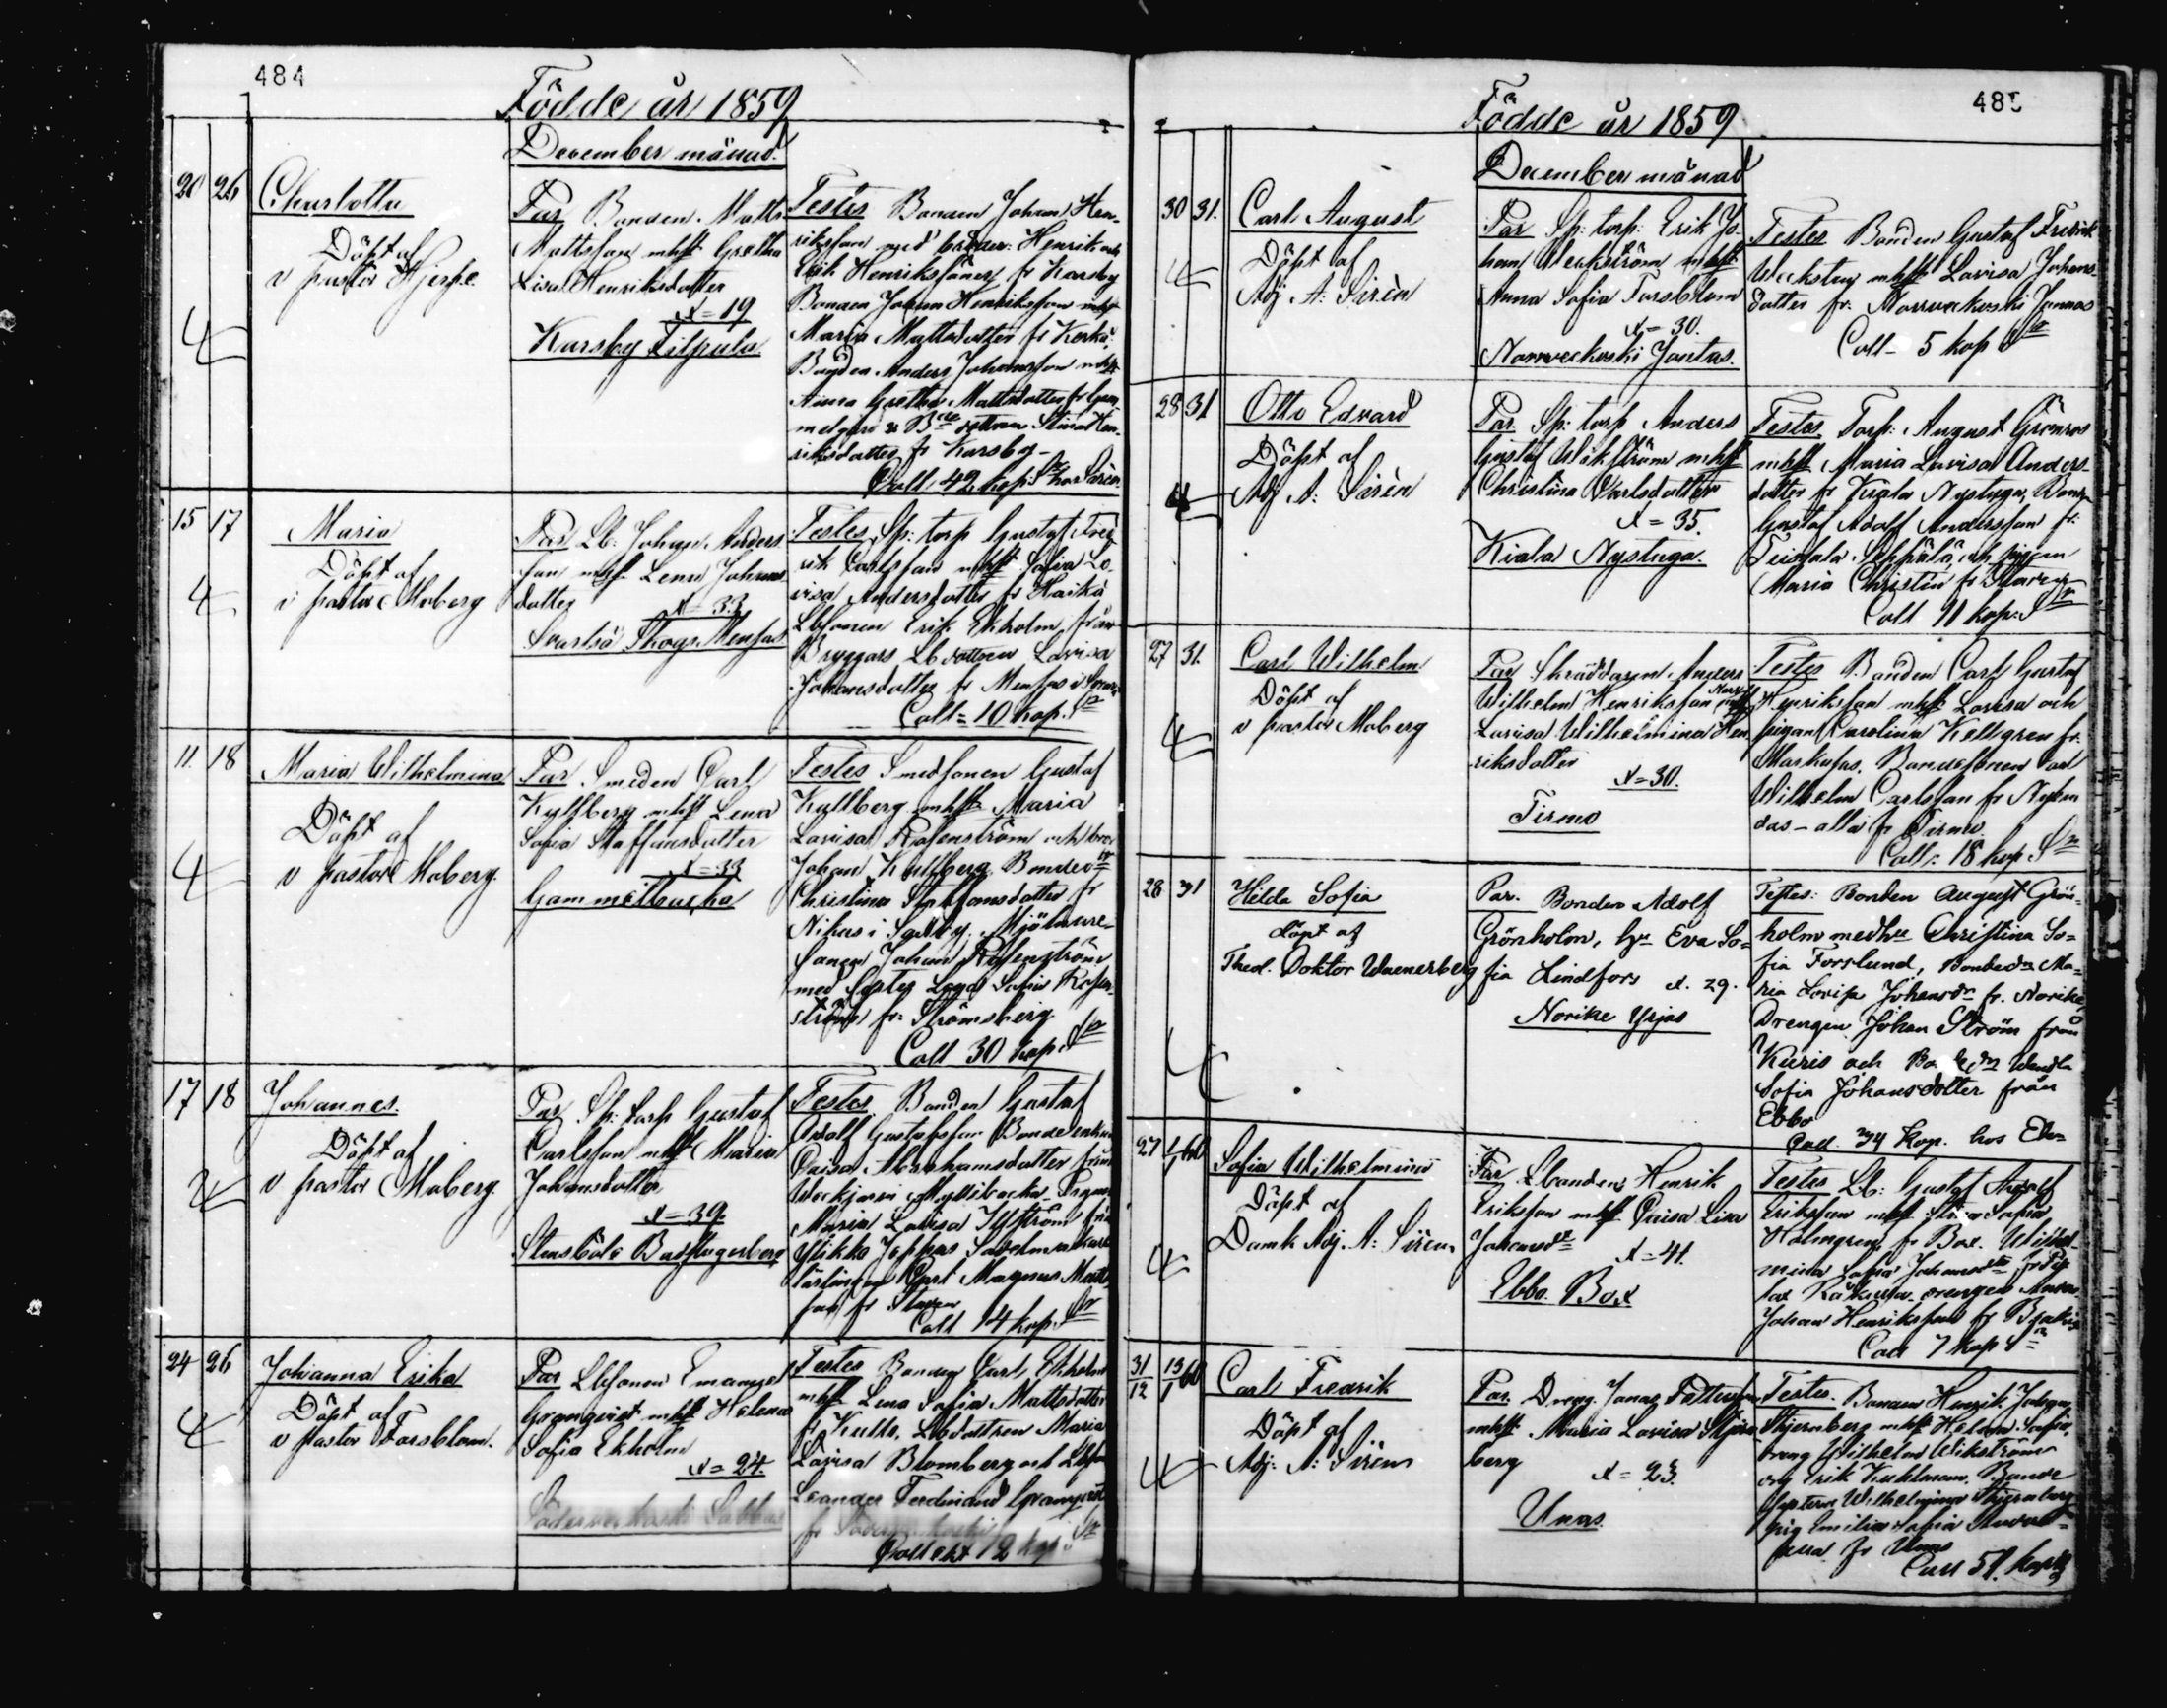 484
Födde år 1859
December månad.
20 26 Charlotta
Döpt af
v pastor Hjerpe.
Par Bonden Matts
Mattsson mhst Gretha
Lisa Henriksdotter
x = 19
Karsby Filpula
Testes Bonden Johan Hen-
riksson med bröder: Henrik och
Erik Henrikssöner fr Karsby
Bonden Johan Henriksson mhst
Maria Mattsdotter fr
Bonden Anders Johansson mhst
Anna Gretha Mattsdotter fr Gam
melgård & dottren Stina Hen-
riksdotter fr Karsby-
Coll. 42 kop. Sirén
15 17 Maria
Döpt af
v pastor Moberg
Par Lb: Johan Anders
son mhst Lena Johans
dotter
x = 33
Svartså Skogs Menfas
Testes Sp: torp Gustaf Fred
rik Carlsson mhst Sofia Lo-
visa Andersdotter fr Haikä
Lbsonen Erik Ekholm från
Bryggars Lbdottren Lovisa
Johansdotter fr Menfas i
Coll = 10 kop.
11 18 Maria Wilhelmina
Döpt af
v pastor Moberg.
Par Smeden Carl
Kyllberg mhst Lena
Sofia Staffansdotter
x = 33
Gammelbacka
Testes Smedsonen Gustaf
Kyllberg mhst Maria
Lovisa Rosenström och
Johan Kullberg Bonded
Christina Staffansdotter fr
Nikus i Mjölnare-
sonen Johan Rosenström
med syster Sofia Rosen-
ström fr: Strömsberg
Coll 30 kop.
17 18 Johannes.
Döpt af
v pastor Moberg.
Par Sp: torp Gustaf
Carlsson mhst Maria
Johansdotter
x = 39.
Stensböle
Testes Bonden Gustaf
Adolf Gustafsson Bondeenkan
Caisa Abrahamsdotter från
Weckjärvi
Maria Lovisa från
Ylikke Joppas
lärlingen Carl Magnus Matts
son fr
Coll 14 kop.
24 26 Johanna Erika
Döpt af
v pastor Forsblom.
Par Lbsonen Emanuel
Granqvist mhst Helena
Sofia Ekholm
x = 24.
Söderveckoski Sabbas
Testes Bonden Carl Ekholm
mhst Lena Sofia Mattsdotter
fr Kullo. Lbdottren Maria
Lovisa Blomberg och Lbson
Leander Ferdinand Granqvist
fr Söderveckoski
Collekt 12 kop
485
Födde år 1859
December månad
30 31. Carl August
Döpt af
Adj A: Sirèn
Par Sp: torp: Erik Jo-
han Weckström mhst
Anna Sofia Forsblom
x = 30.
Norrveckoski Jontas.
Testes Bonden Gustaf Fredrik
Weckstén mhst Lovisa Johans-
dotter fr: Norrveckoski Jonnas
Coll- 5 kop
28 31 Otto Edvard
Döpt af
Adj A: Sirèn
Par. Sp: torp Anders
Gustaf Wikström mhst
Christina Carlsdotter
x = 35.
Kiala Nystuga.
Testes Torp: August Grönroos
mhst Maria Lovisa Anders-
dotter fr Kiala Nystuga, Bonden
Gustaf Adolf Andersson fr.
Teissala Seppälä, och pigan
Maria Christin fr
Coll 11 kop.
27 31. Carl Wilhelm
Döpt af
v pastor Moberg
Par Skräddaren Anders
Wilhelm Henriksson mhst
Lovisa Wilhelmina Hen
riksdotter
x = 30.
Tirmo
Testes Bonden Carl Gustaf
Henriksson mhst Lovisa och
pigan Carolina Kellgren fr.
Markufas. Bondesonen Carl
Wilhelm Carlsson fr Nyben
das - alla fr Tirmo.
Coll: 18 kop
28 31 Hilda Sofia
döpt af
Theol. Doktor Wænerberg
Par. Bonden Adolf
Grönholm, h. Eva So=
fia Lindfors x. 29.
Norike Yrjas
Testes: Bonden August Grön=
holm med h. Christina So=
fia Forslund, Bonded. Ma=
ria Lovisa Johansdr fr. Norike
Drengen Johan Ström från
Kuris och Wendla
Sofia Johansdotter från
Ebbo
Coll. 34 Kop. hos
27 1/1 60 Sofia Wilhelmina
Döpt af
Domk Adj. A: Sirèn
Par Lbonden Henrik
Eriksson mhst Caisa Lisa
Johansdr
x = 41.
Ebbo Box
Testes Lb: Gustaf Adolf
Eriksson mhst Stina Sofia
Holmgren fr Box. Wilhel-
mina Sofia Johansdr fr
drengen Anders
Johan Henriksson fr
Coll 7 kop
31/12 13/1 60 Carl Fredrik
Döpt af
Adj. A: Sirèn
Par. Dreng. Jonas
mhst Maria Lovisa Stjern
berg
x = 23.
Unas.
Testes. Bonden Henrik Johan
Stjernberg mhst Helena Sofia,
dreng Wilhelm Wikström
och Erik Kuhlman. Bonde
dottren Wilhelmina Stjernberg
pig Emilia Sofia
fr Unas
Coll 51. kop